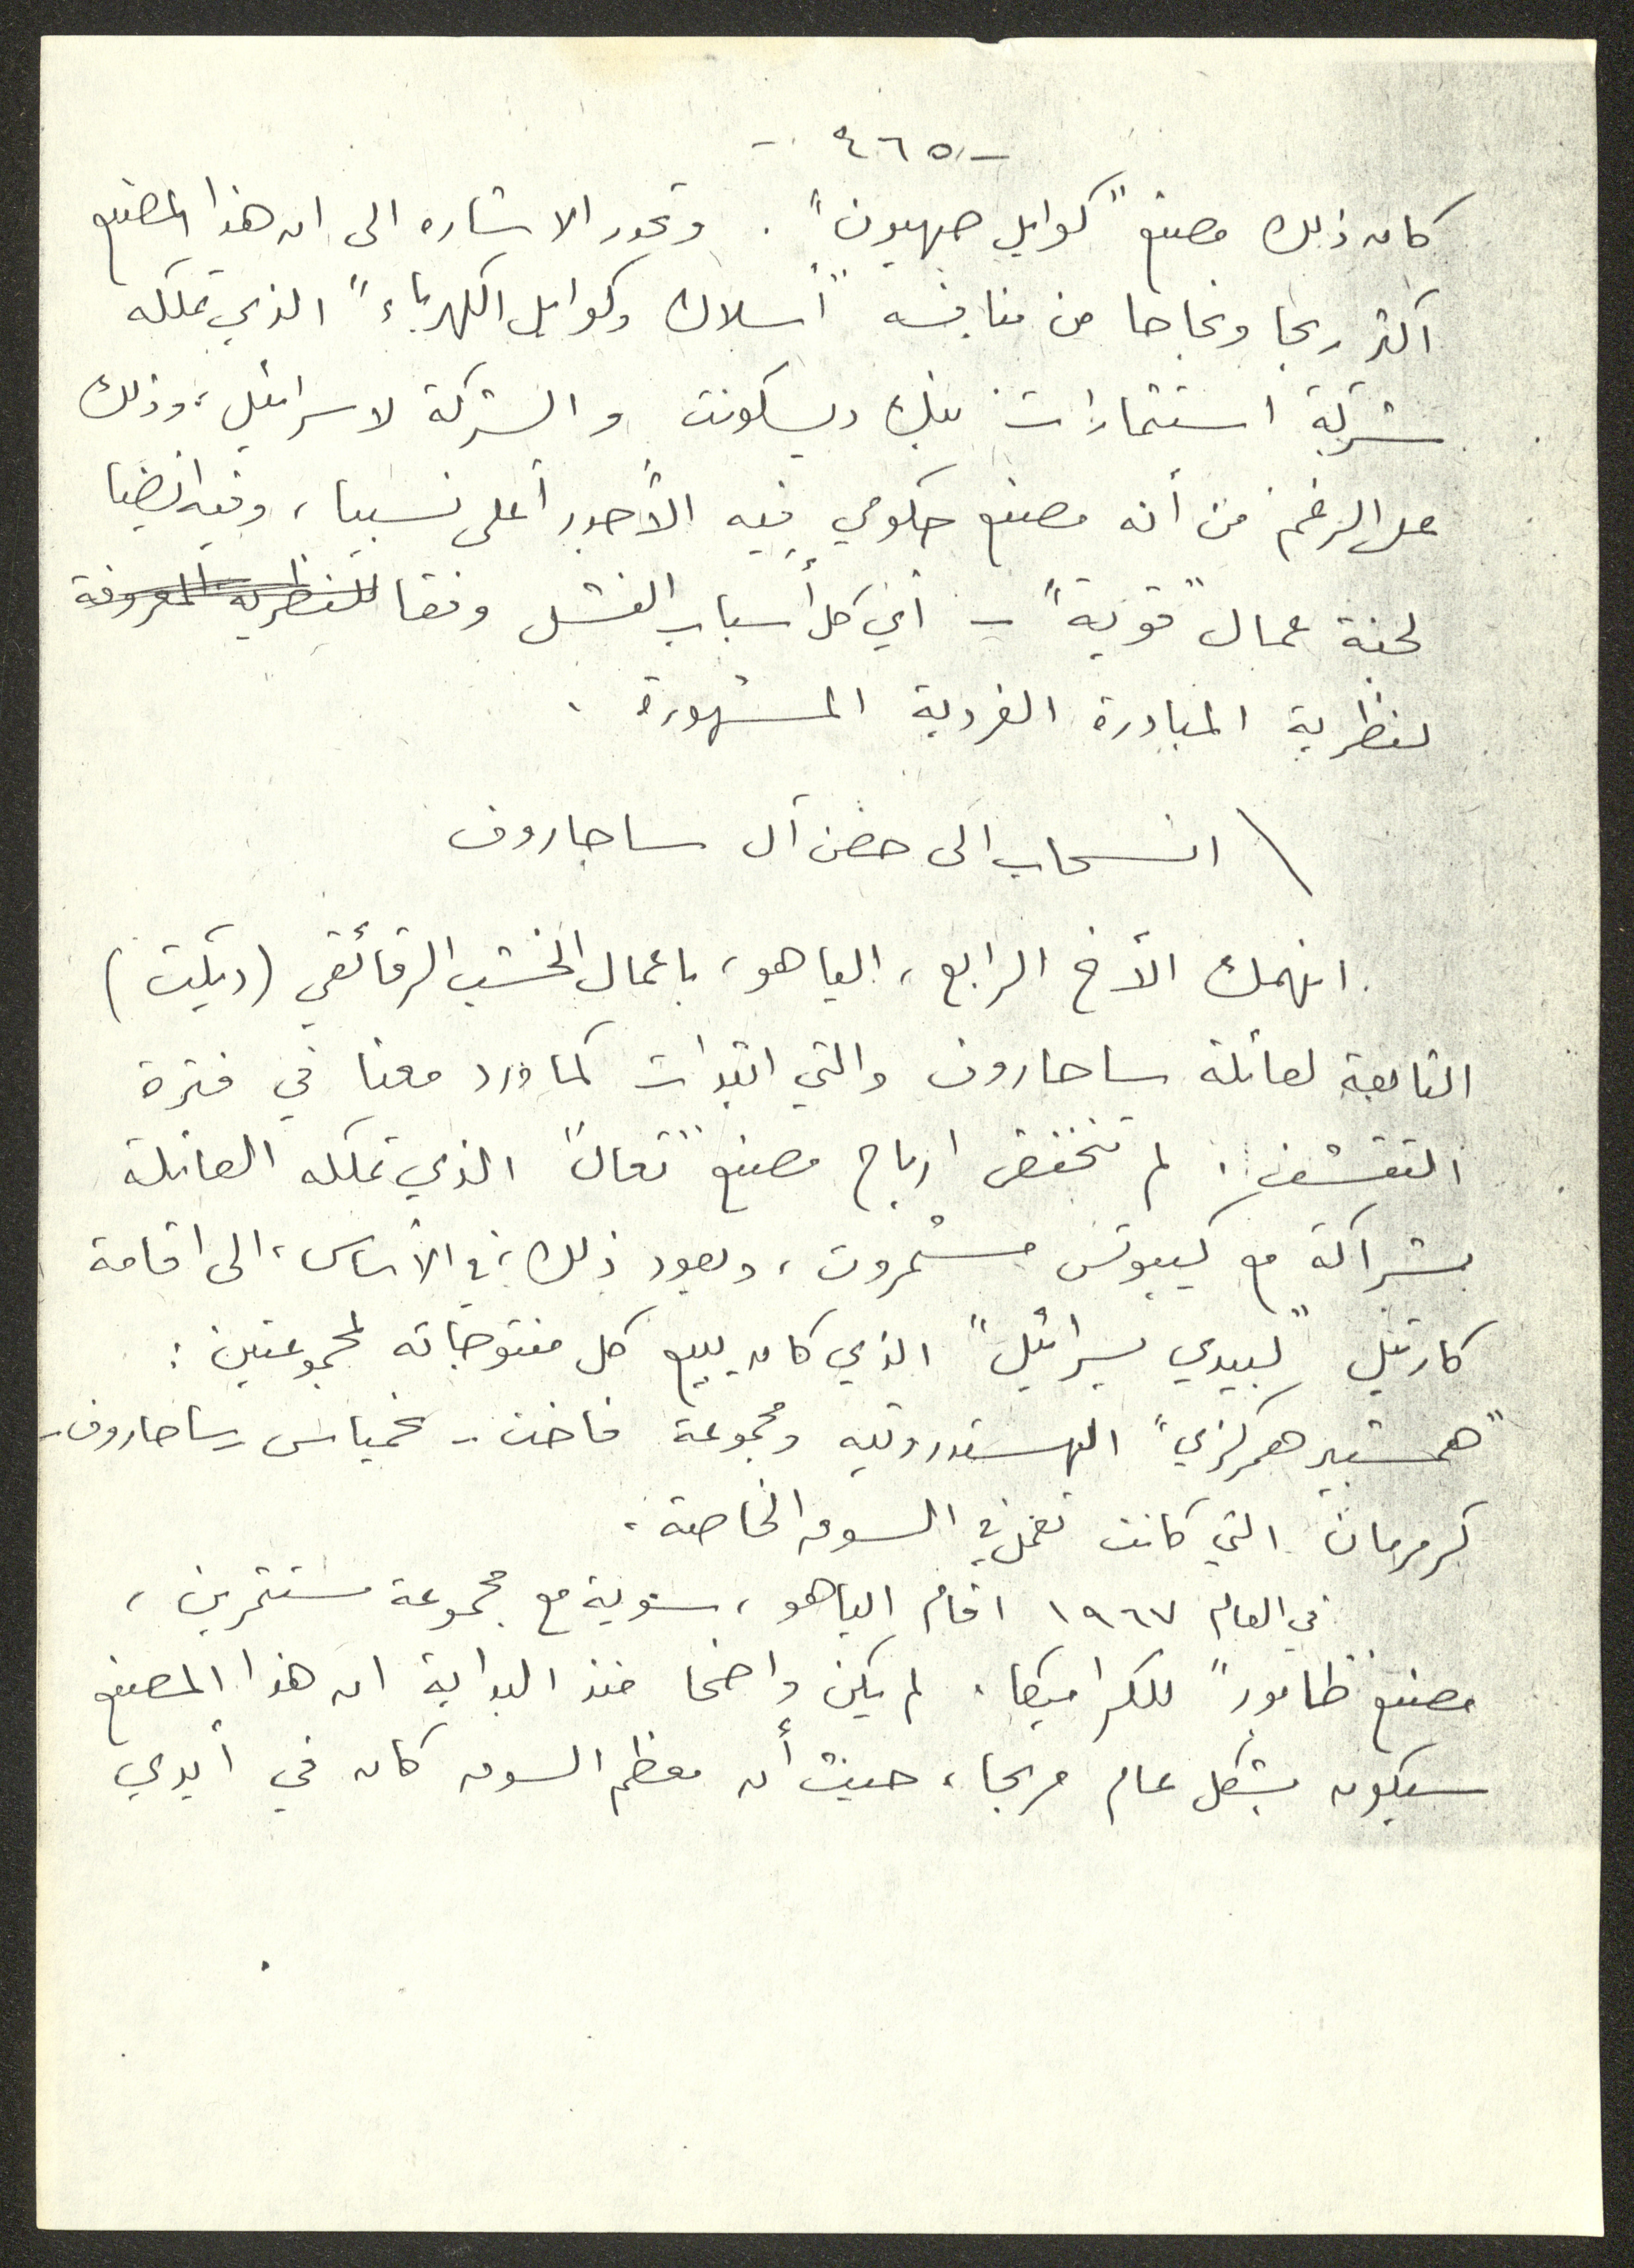 - ٤٦٥ -
كان ذلك مصنع "كوابل صهيون". وتجدر الاشاره الى ان هذا المصنع
أكثر ربحا ونجاحا من منافسه "أسلاك وكوابل الكهرباء" الذي تملكه
شركة استثمارات بنك ديسكونت والشركة لاسرائيل، وذلك
على الرغم من أنه مصنع حكومي فيه الأجور أعلى نسبيا، وفيه ايضا
لجنة عمال "قوية" - أي كل أسباب الفشل وفقا للنظرية المعروفة
لنظرية المبادرة الفردية المشهورة.
\ انسحاب الى حضن آل ساحاروف
انهمك الأخ الرابع، الياهو، باعمال الخشب الرقائقي (ديكت)
التابعة لعائلة ساحاروف والتي ابتدات كما ورد معنا في فترة
التقشف. لم تنخفض ارباح مصنع "تعال" الذي تملكه العائلة
بشراكة مع كيبوتس مشمروت، ويعود ذلك، في الأساس، الى اقامة
كارتيل "لبيدي يسرائيل" الذي كان يبيع كل منتوجاته لمجموعتين:
"همشبير همركزي" الهستدروتيه ومجموعة فاخت - نحمياس - ساحاروف -
كرمرمان التي كانت تعمل في السوق الخاصة.
في العام ١٩٦٧ اقام الياهو، سوية مع مجموعة مستثمرين،
مصنع "طابور" للكراميكا. لم يكن واضحا منذ البداية ان هذا المصنع
سيكون بشكل عام مربحا، حيث أن معظم السوق كان في أيدي